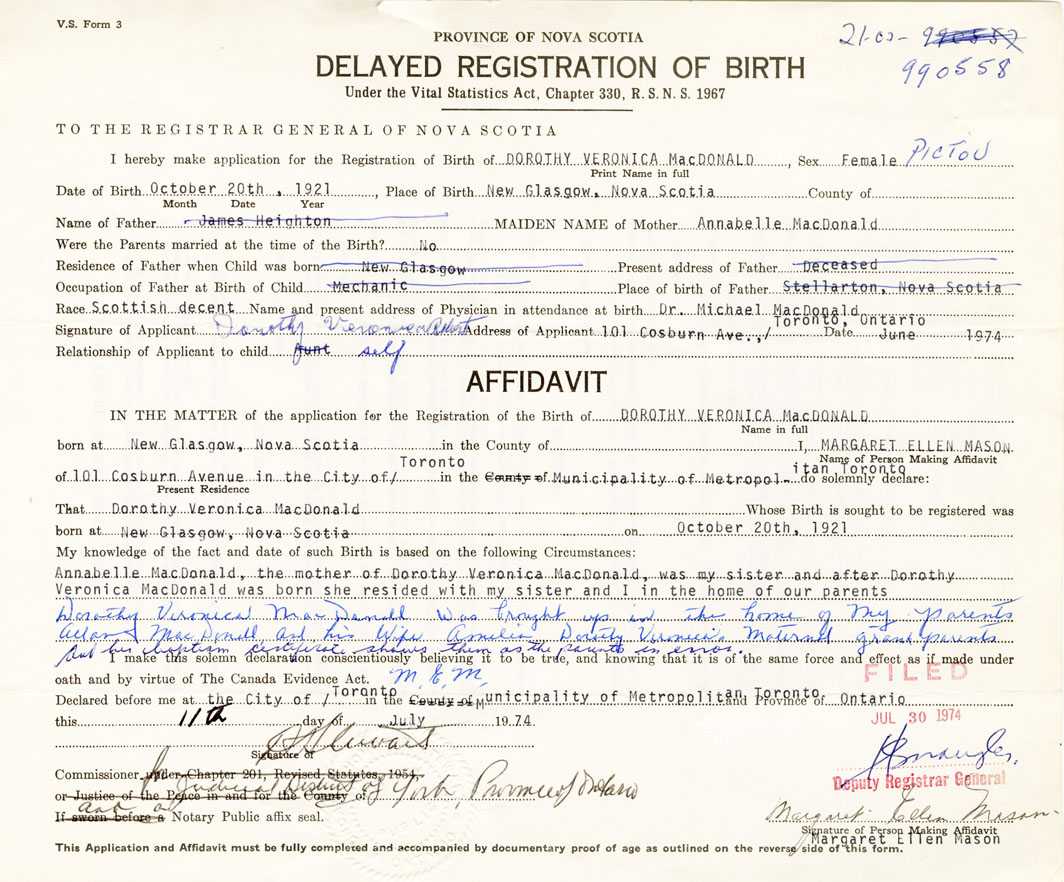 V.S. Form 3
21-00- 990557
990558
PROVINCE OF NOVA SCOTIA
DELAYED REGISTRATION OF BIRTH
Under the Vital Statistics Act, Chapter 330, R.S.N.S. 1967
TO THE REGISTRAR GENERAL OF NOVA SCOTIA
I hereby make application for the Registration of Birth of DOROTHY VERONICA MacDONALD, Sex Female PICTOU
Print Name in full
Date of Birth October 20th, 1921, Place of Birth New Glasgow, Nova Scotia County of
Month Date Year
Name of Father James Heighton MAIDEN NAME of Mother Annabelle MacDonald
Were the Parents married at the time of the Birth? No
Residence of Father when Child was born New Glasgow Present address of Father Deceased
Occupation of Father at Birth of Child Mechanic Place of birth of Father Stellarton, Nova Scotia
Race Scottish decent Name and present address of Physician in attendance at birth Dr. Michael MacDonald
Toronto, Ontario
Signature of Applicant Dorothy Veronica Address of Applicant 101 Cosburn Ave.,/ Date June 1974
Relationship of Applicant to child Aunt self
AFFIDAVIT
IN THE MATTER of the application for the Registration of the Birth of DOROTHY VERONICA MacDONALD
Name in full
born at New Glasgow, Nova Scotia in the County of I, MARGARET ELLEN MASON
Name of Person Making Affidavit
Toronto itan Toronto
of 101 Cosburn Avenue in the City of/ in the County of Municipality of Metropol- do solemnly declare:
Present Residence
That Dorothy Veronica MacDonald Whose Birth is sought to be registered was
born at New Glasgow, Nova Scotia on October 20th, 1921
My knowledge of the fact and date of such Birth is based on the following Circumstances:
Annabelle MacDonald, the mother of Dorothy Veronica MacDonald, was my sister and after Dorothy
Veronica MacDonald was born she resided with my sister and I in the home of our parents
Dorothy Veronica MacDonald was brought up in the home of My parents
Allan MacDonald and his Wife Amelia, Dorothy Veronica's Maternal grandparents
and his baptism certificate shows them as the parents in error.
I make this solemn declaration conscientiously believing it to be true, and knowing that it is of the same force and effect as if made under
oath and by virtue of The Canada Evidence Act. M.E.M.
FILED
Declared before me at the City of / Toronto in the County of Municipality of Metropolitan Toronto and Province of Ontario
this 11th day of July 1974
JUL 30 1974
Signature of
Commissioner under Chapter 201, Revised Statutes, 1954,
Judicial District of York, Province of Ontario
or Justice of the Peace in and for the County of
Deputy Registrar General
and a
If sworn before a Notary Public affix seal.
Margaret Ellen Mason
Signature of Person Making Affidavit
Margaret Ellen Mason
This Application and Affidavit must be fully completed and accompanied by documentary proof of age as outlined on the reverse side of this form.